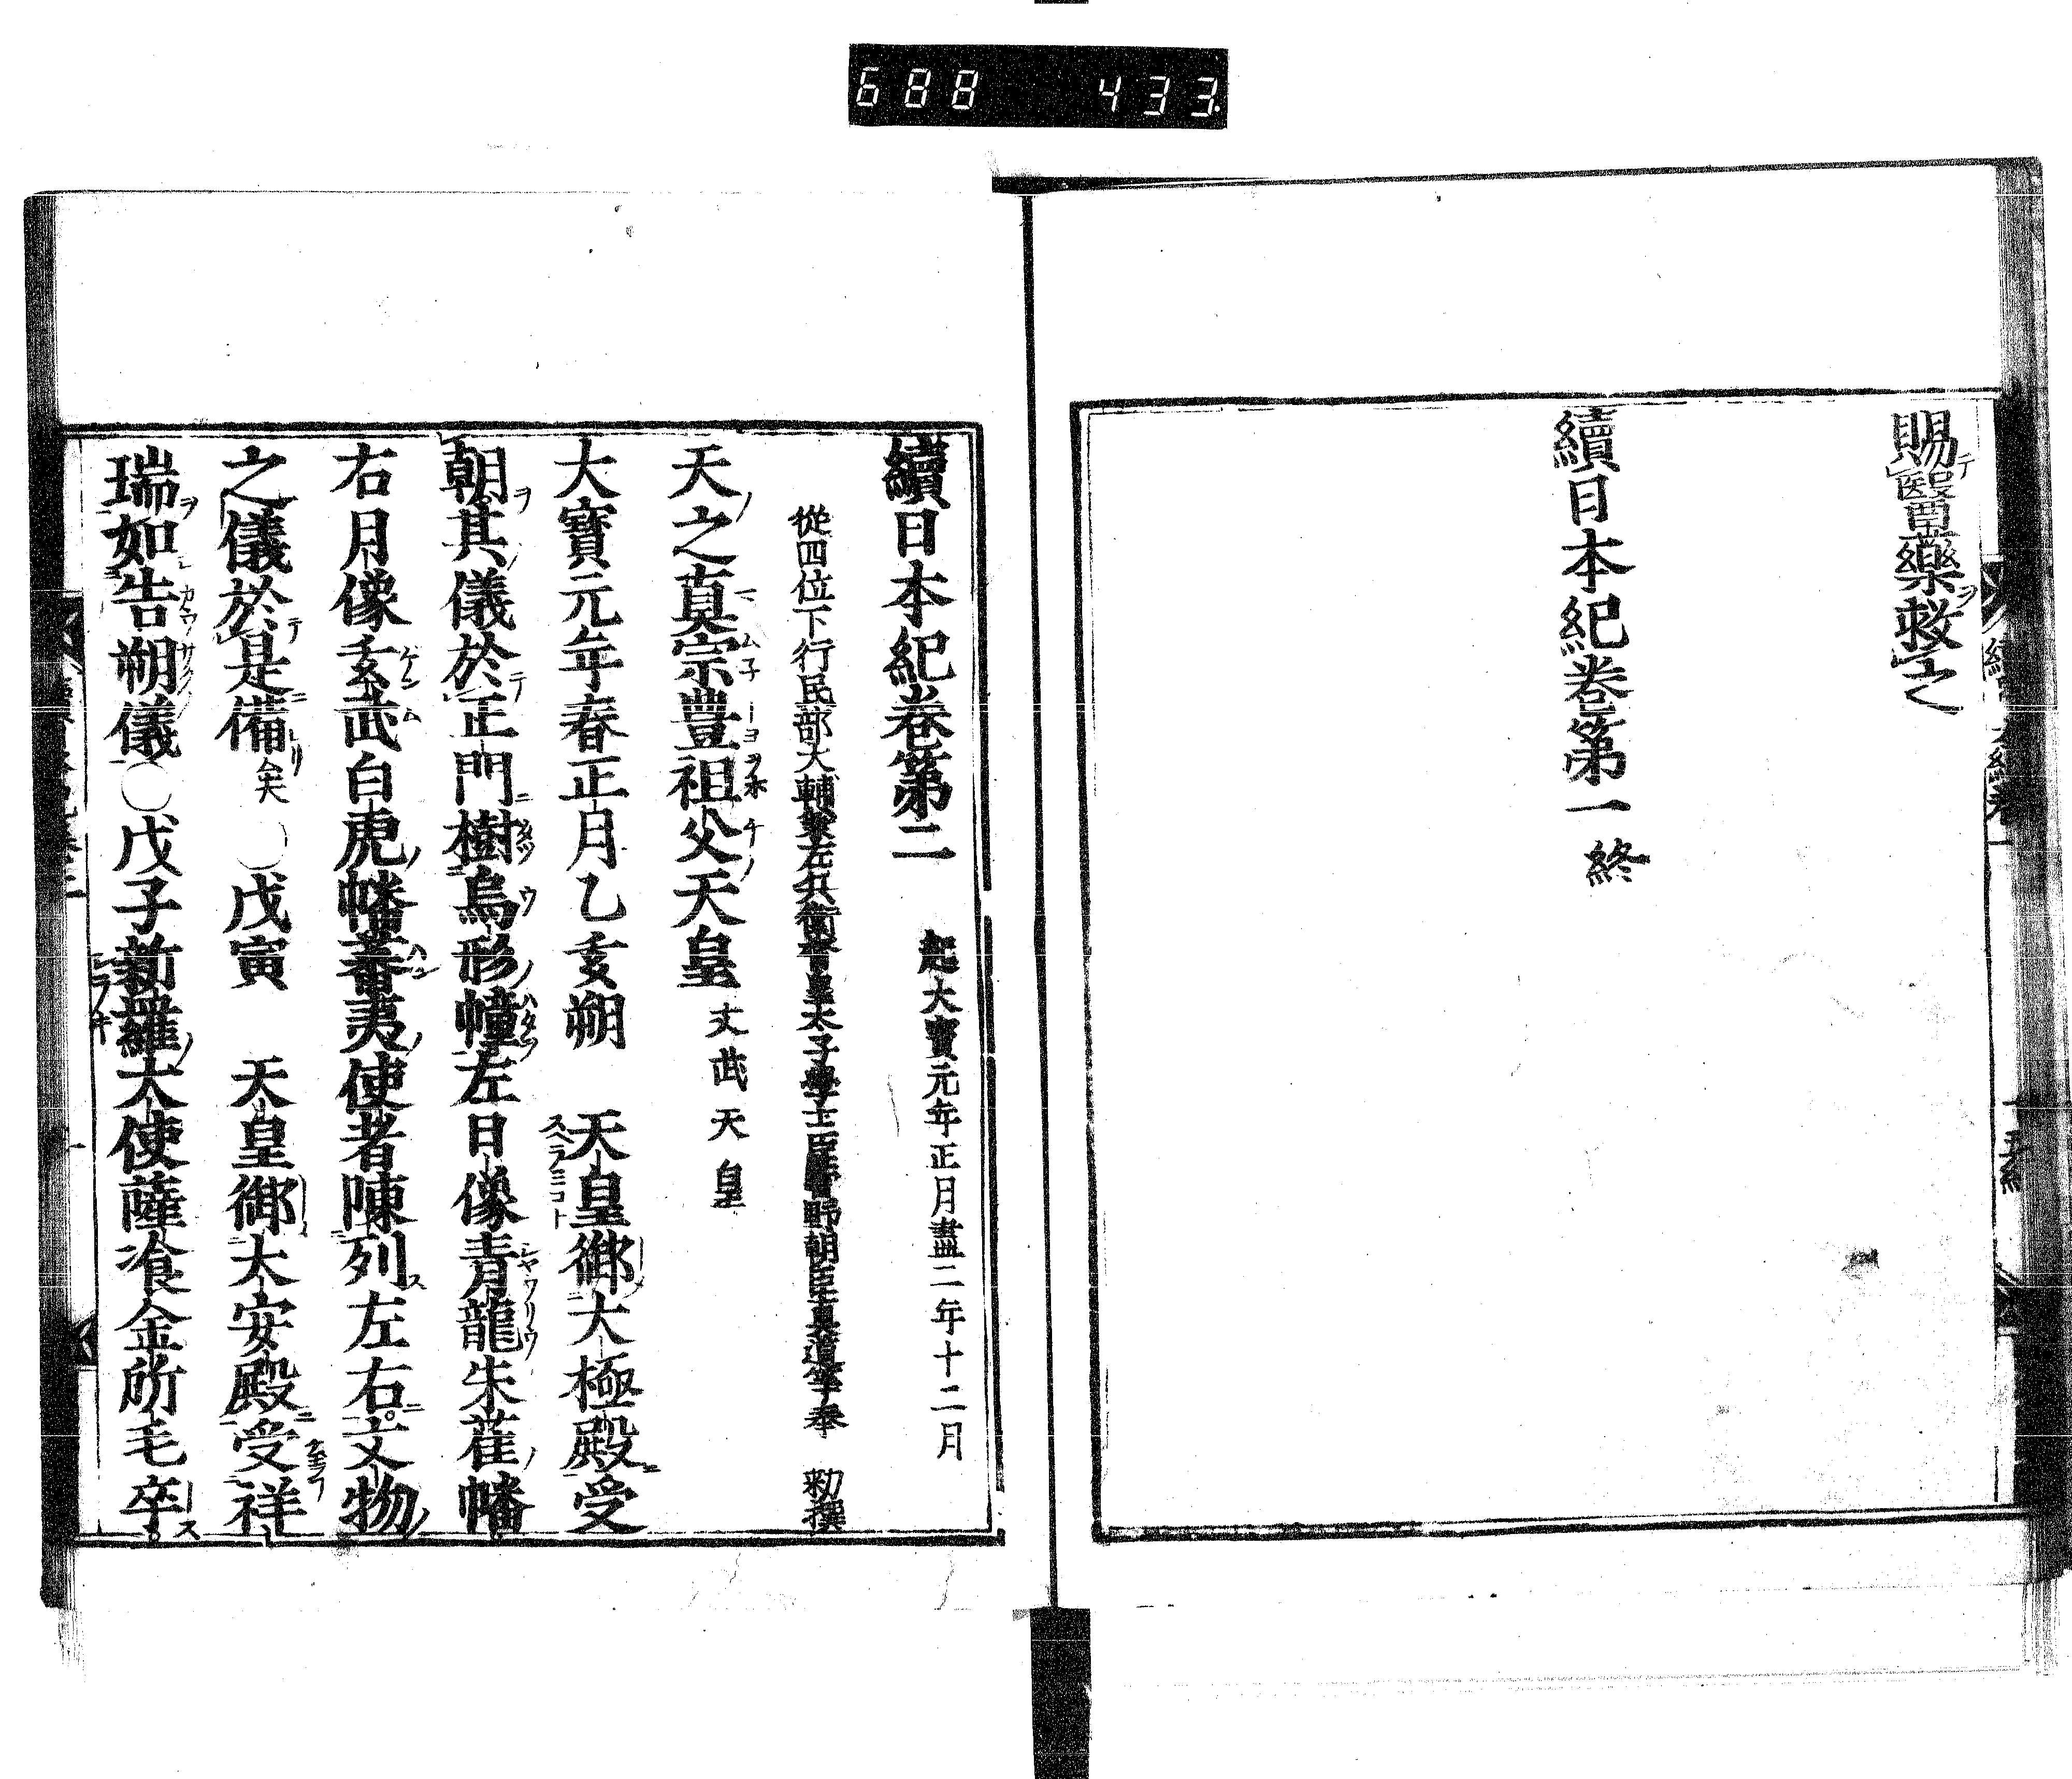 688 433
賜醫藥救之
續日本紀卷第一 終
續日本紀卷第二 起大寶元年正月盡二年十二月
從四位下行民部大輔兼左兵衞督皇太子學士臣菅野朝臣眞道等奉 勅撰
天之眞宗豐祖父天皇 文武天皇
大寶元年春正月乙亥朔 天皇御大極殿受
朝其儀於正門樹烏形幢左日像青龍朱雀幡
右月像玄武白虎幡蕃夷使者陳列左右文物
之儀於是備矣〇戊寅 天皇御大安殿受祥
瑞如告朔儀〇戊子新羅大使薩飡金所毛卒